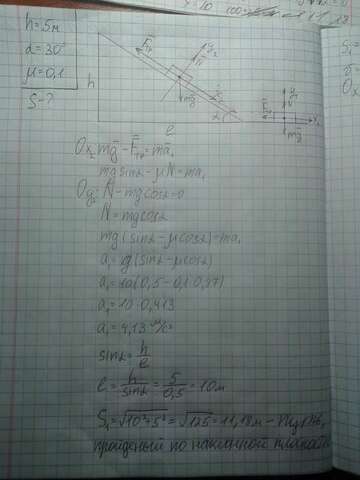 h=5м
α=30°
μ=0,1
S-?
h
l
α
F̄тр
N̄
y₂
x₂
mḡ
F̄тр
N̄
y₁
x₁
mḡ
Ox₂ mḡ-F̄тр=mā₁
mg sinα-μN=ma₁
Oy₂ N-mg cosα=0
N=mg cosα
mg(sinα-μcosα)=ma₁
a₁=g(sinα-μcosα)
a₁=10(0,5-0,1·0,87)
a₁=10·0,413
a₁=4,13 м/с²
sinα=h/l
l=h/sinα=5/0,5=10м
S₁=√10²+5²=√125=11,18м-путь,
пройденый по наклонной плоскости